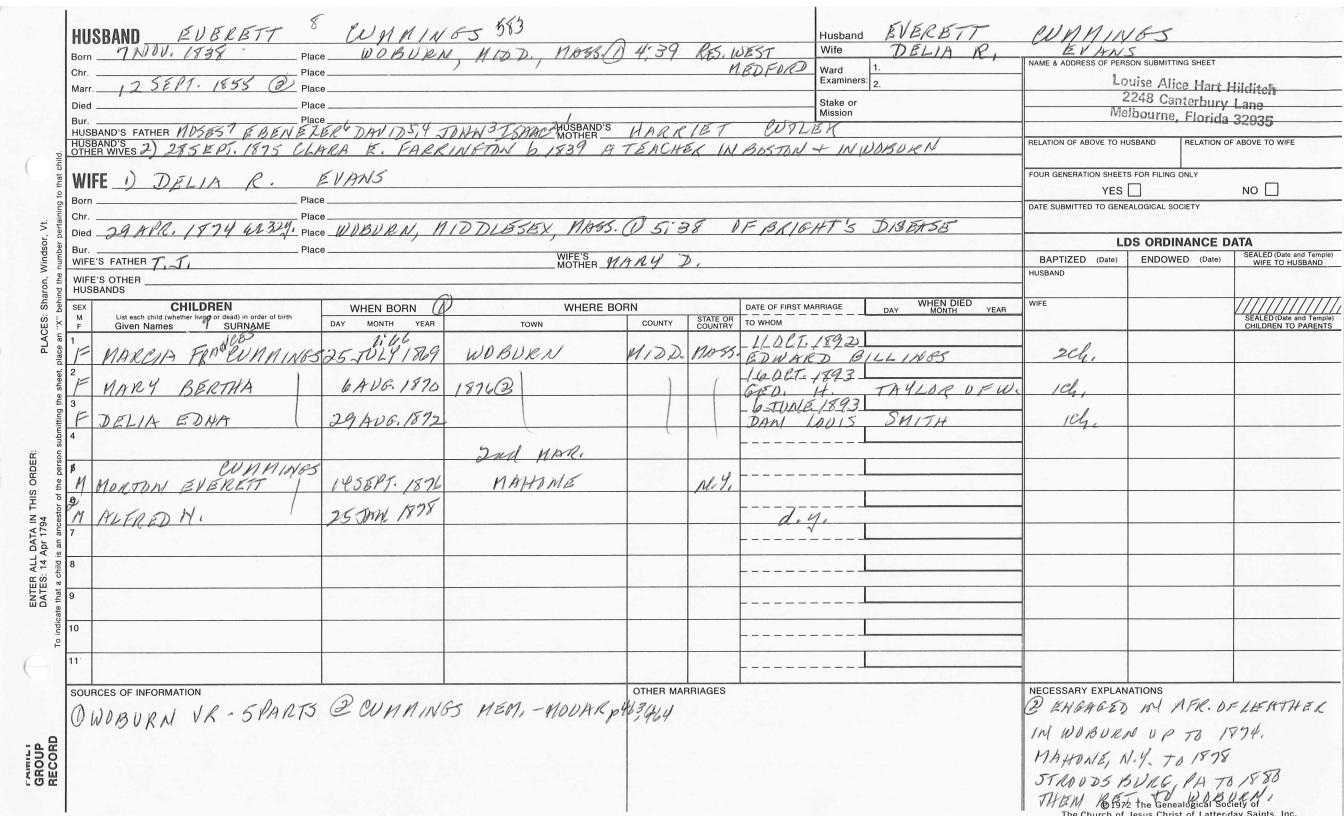 HUSBAND EVERETT 8 CUMMINGS 583
Husband EVERETT CUMMINGS
Wife DELIA R. EVANS
Born 7 NOV. 1838 Place WOBURN, MIDD., MASS. ① 4:39 RES. WEST MEDFORD
Chr. Place
Marr. 12 SEPT. 1855 ② Place
Died Place
Bur. Place
Ward Examiners: 1.
2.
Stake or Mission
NAME & ADDRESS OF PERSON SUBMITTING SHEET
Louise Alice Hart Hilditch
2248 Canterbury Lane
Melbourne, Florida 32935
HUSBAND'S FATHER MOSES7 EBENEZER6 DAVID5,4 JOHN3 ISAAC2,1 HUSBAND'S MOTHER HARRIET CUTLER
HUSBAND'S OTHER WIVES 2) 28 SEPT. 1875 CLARA E. FARRINGTON b 1839 A TEACHER IN BOSTON + IN WOBURN
RELATION OF ABOVE TO HUSBAND RELATION OF ABOVE TO WIFE
WIFE 1) DELIA R. EVANS
Born Place
Chr. Place
Died 29 APR. 1874 32y. Place WOBURN, MIDDLESEX, MASS. ① 5:38 OF BRIGHT'S DISEASE
Bur. Place
WIFE'S FATHER T.J. WIFE'S MOTHER MARY D.
WIFE'S OTHER HUSBANDS
FOUR GENERATION SHEETS FOR FILING ONLY
YES NO
DATE SUBMITTED TO GENEALOGICAL SOCIETY
LDS ORDINANCE DATA
BAPTIZED (Date) ENDOWED (Date) SEALED (Date and Temple) WIFE TO HUSBAND
HUSBAND
WIFE
SEALED (Date and Temple) CHILDREN TO PARENTS
SEX M F
CHILDREN
List each child (whether living or dead) in order of birth
Given Names 9 SURNAME
WHEN BORN ①
DAY MONTH YEAR
WHERE BORN
TOWN COUNTY STATE OR COUNTRY
DATE OF FIRST MARRIAGE
TO WHOM
WHEN DIED
DAY MONTH YEAR
1 F MARCIA FRANCES CUMMINGS 25 JULY 1869 WOBURN MIDD. MASS. 11 OCT. 1892 EDWARD BILLINGS 2ch.
2 F MARY BERTHA 6 AUG. 1870 1876② 16 OCT. 1893 GEO. H. TAYLOR OF W. 1ch.
3 F DELIA EDNA 29 AUG. 1872 6 JUNE 1893 DAN LOUIS SMITH 1ch.
4 2nd MAR.
CUMMINGS
M MORTON EVERETT 14 SEPT. 1876 MAHONE N.Y.
M ALFRED H. 25 JAN 1878 d.y.
7
8
9
10
11
SOURCES OF INFORMATION
① WOBURN VR - 5 PARTS ② CUMMINGS MEM. - MOUAR p463,464
OTHER MARRIAGES
NECESSARY EXPLANATIONS
② ENGAGED IN MFR. OF LEATHER
IN WOBURN UP TO 1874.
MAHONE, N.Y. TO 1878
STROUDSBURG, PA TO 1880
THEM RET. TO WOBURN.
©1972 The Genealogical Society of
The Church of Jesus Christ of Latter-day Saints, Inc.
ENTER ALL DATA IN THIS ORDER:
DATES: 14 Apr 1794
PLACES: Sharon, Windsor, Vt.
To indicate that a child is an ancestor of the person submitting the sheet, place an "X" behind the number pertaining to that child.
FAMILY GROUP RECORD